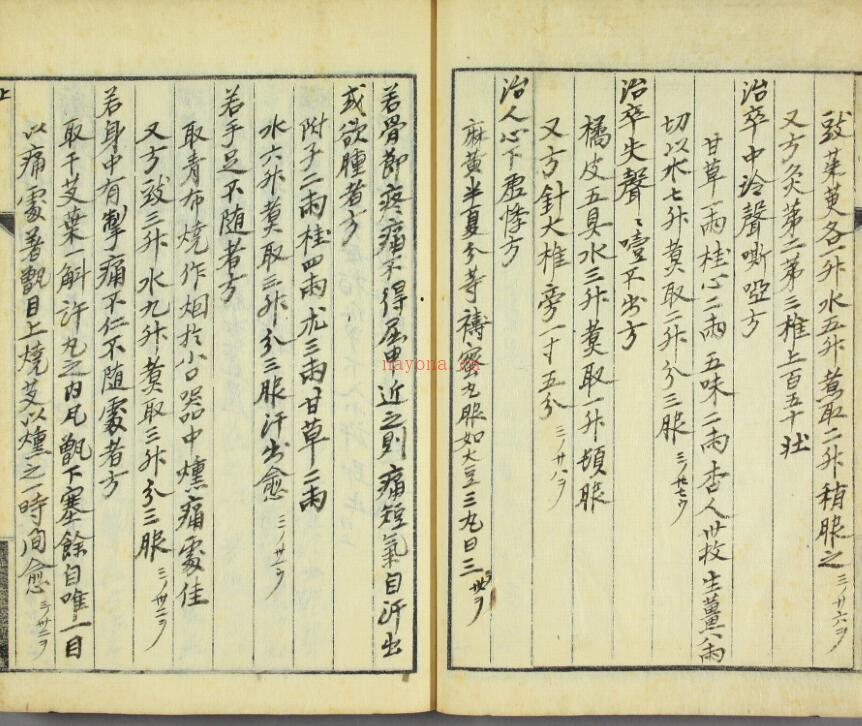 豉茱萸各一升水五升煮取二升稍服之 三ノ廿六ヲ
又方灸第二第三椎上百五十壮
治卒中冷聲嘶啞方
甘草一兩桂心二兩五味二兩杏人卅枚生薑八兩
切以水七升煑取二升分三服 三ノ廿七ウ
治卒失聲〻噎不出方
橘皮五具水三升煑取一升頓服
又方針大椎旁一寸五分 三ノ廿八ヲ
治人心下虚悸方
麻黄半夏分等擣蜜丸服如大豆三丸日三 卅ヲ
若骨節疼痛不得屈申近之則痛短氣自汗出
或欲腫者方
附子二兩桂四兩朮三兩甘草二兩
水六升煑取三升分三服汗出愈 三ノ卅一ウ
若手足不随者方
取青布燒作烟於小口器中燻痛處佳
又方豉三升水九升煑取三升分三服 三ノ卅二ヲ
若身中有掣痛不仁不随處者方
取干艾葉一斛許丸之内瓦甑下塞餘目唯一目
以痛處著甑目上燒艾以燻之一時間愈 三ノ卅二ヲ
上
nayona.cn